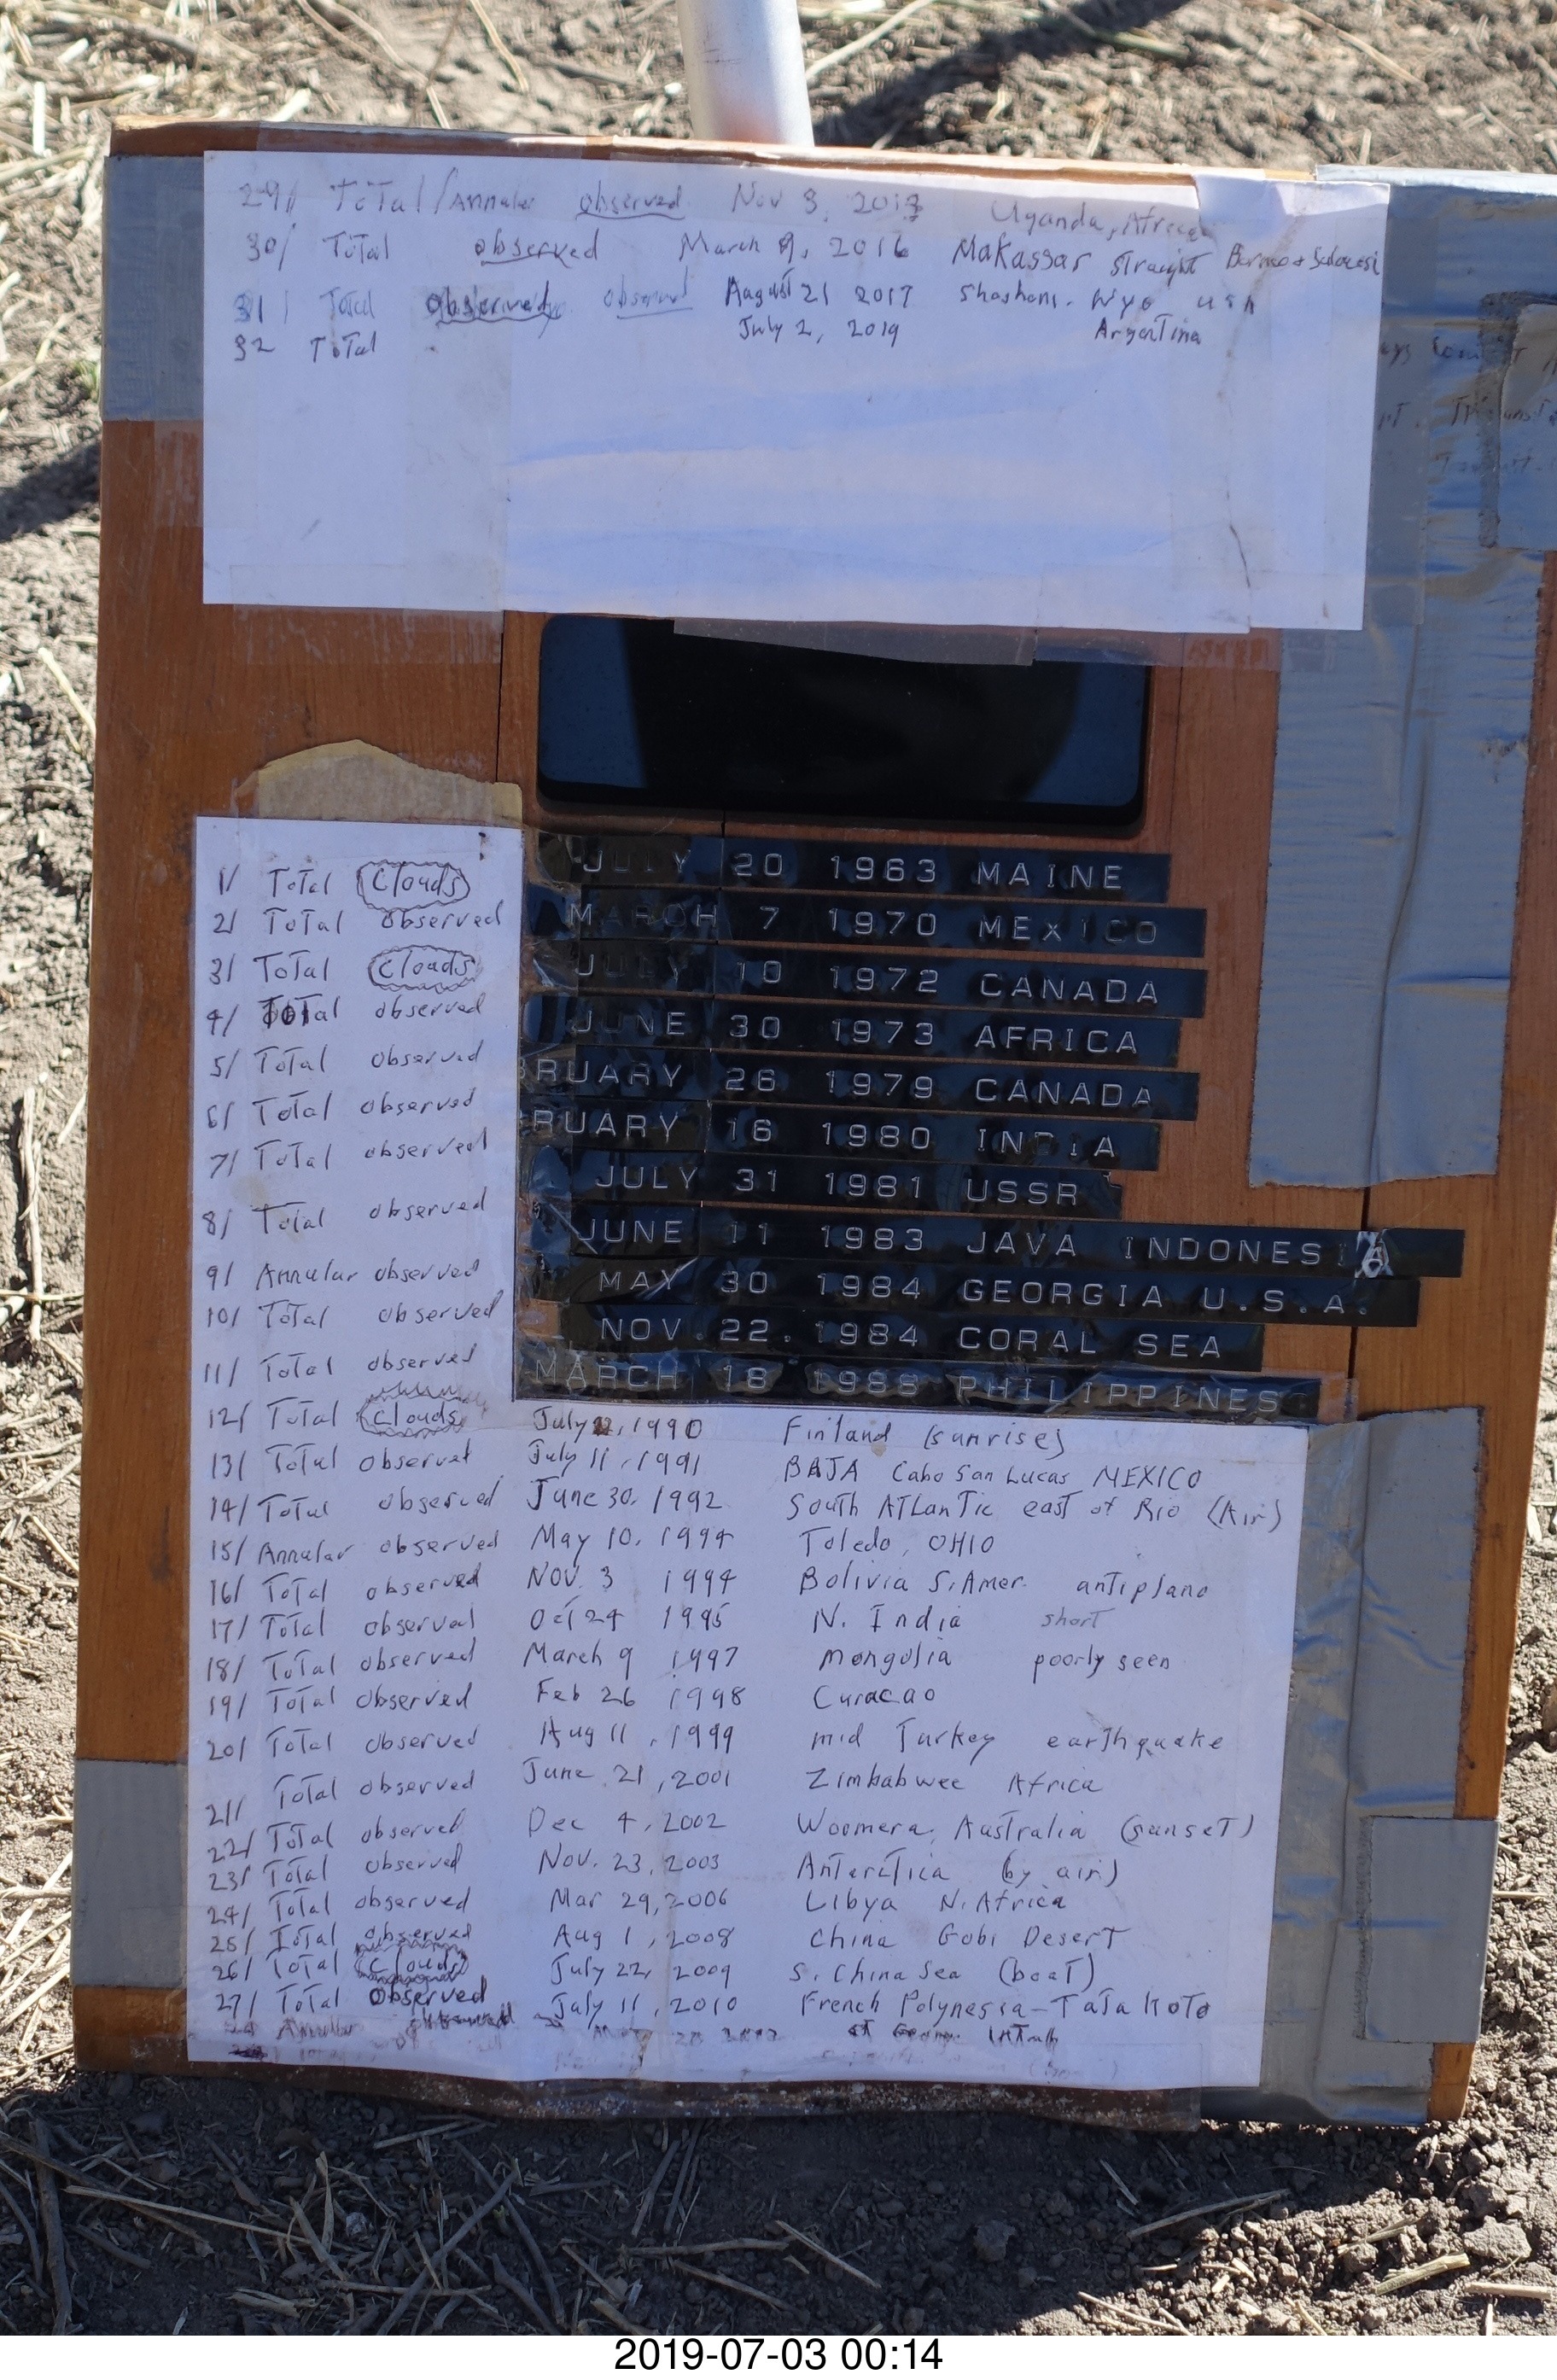 29/ Total/Annular observed Nov 3, 2013 Uganda, Africa
30/ Total observed March 9, 2016 Makassar Straight Borneo + Sulawesi
31/ Total observed observed August 21 2017 Shoshoni. Wyo USA
32 Total July 2, 2019 Argentina
1/ Total Clouds JULY 20 1963 MAINE
2/ Total observed MARCH 7 1970 MEXICO
3/ Total Clouds JULY 10 1972 CANADA
4/ Total observed JUNE 30 1973 AFRICA
5/ Total observed BRUARY 26 1979 CANADA
6/ Total observed RUARY 16 1980 INDIA
7/ Total observed JULY 31 1981 USSR
8/ Total observed JUNE 11 1983 JAVA INDONESIA
9/ Annular observed MAY 30 1984 GEORGIA U.S.A.
10/ Total observed NOV.22.1984 CORAL SEA
11/ Total observed MARCH 18 1988 PHILIPPINES
12/ Total Clouds July 22, 1990 Finland (sunrise)
13/ Total observed July 11, 1991 BAJA Cabo San Lucas MEXICO
14/ Total observed June 30, 1992 South Atlantic east of Rio (Air)
15/ Annular observed May 10, 1994 Toledo, OHIO
16/ Total observed Nov. 3 1994 Bolivia S. Amer. antiplano
17/ Total observed Oct 24 1995 N. India short
18/ Total observed March 9 1997 Mongolia poorly seen
19/ Total observed Feb 26 1998 Curacao
20/ Total observed Aug 11, 1999 mid Turkey earthquake
21/ Total observed June 21, 2001 Zimbabwee Africa
22/ Total observed Dec 4, 2002 Woomera, Australia (sunset)
23/ Total observed Nov. 23, 2003 Antarctica (by air)
24/ Total observed Mar 29, 2006 Libya N. Africa
25/ Total observed Aug 1, 2008 China Gobi Desert
26/ Total Clouds July 22, 2009 S. China Sea (boat)
27/ Total observed July 11, 2010 French Polynesia - Tatakoto
Annular observed May 20 St George Utah
2019-07-03 00:14